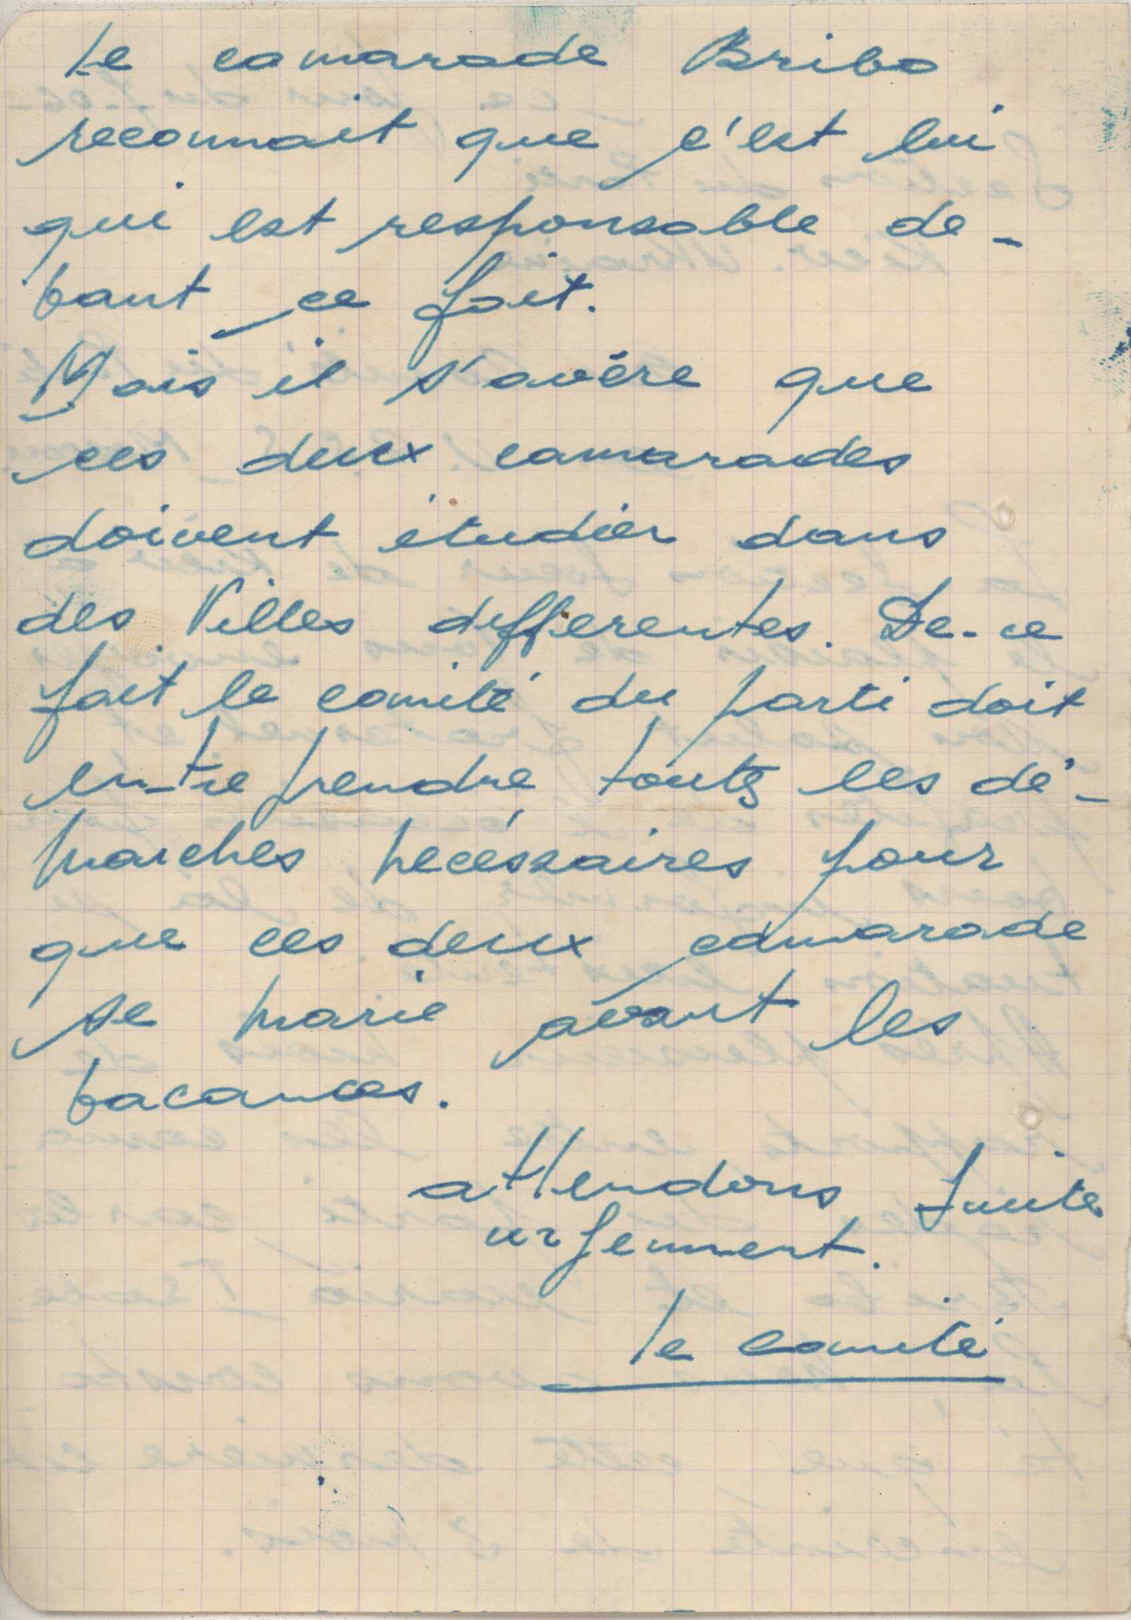 Le camarade Bribo
reconnait que c'est lui
qui est responsable de-
bant ce fait.
Mais il s'avère que
ces deux camarades
doivent étudier dans
des Villes differentes. De-ce
fait le comité du parti doit
entreprendre touts les dé-
marches necéssaires pour
que ces deux camarade
se marie avant les
bacances.
attendons suite
urgemment.
le comité